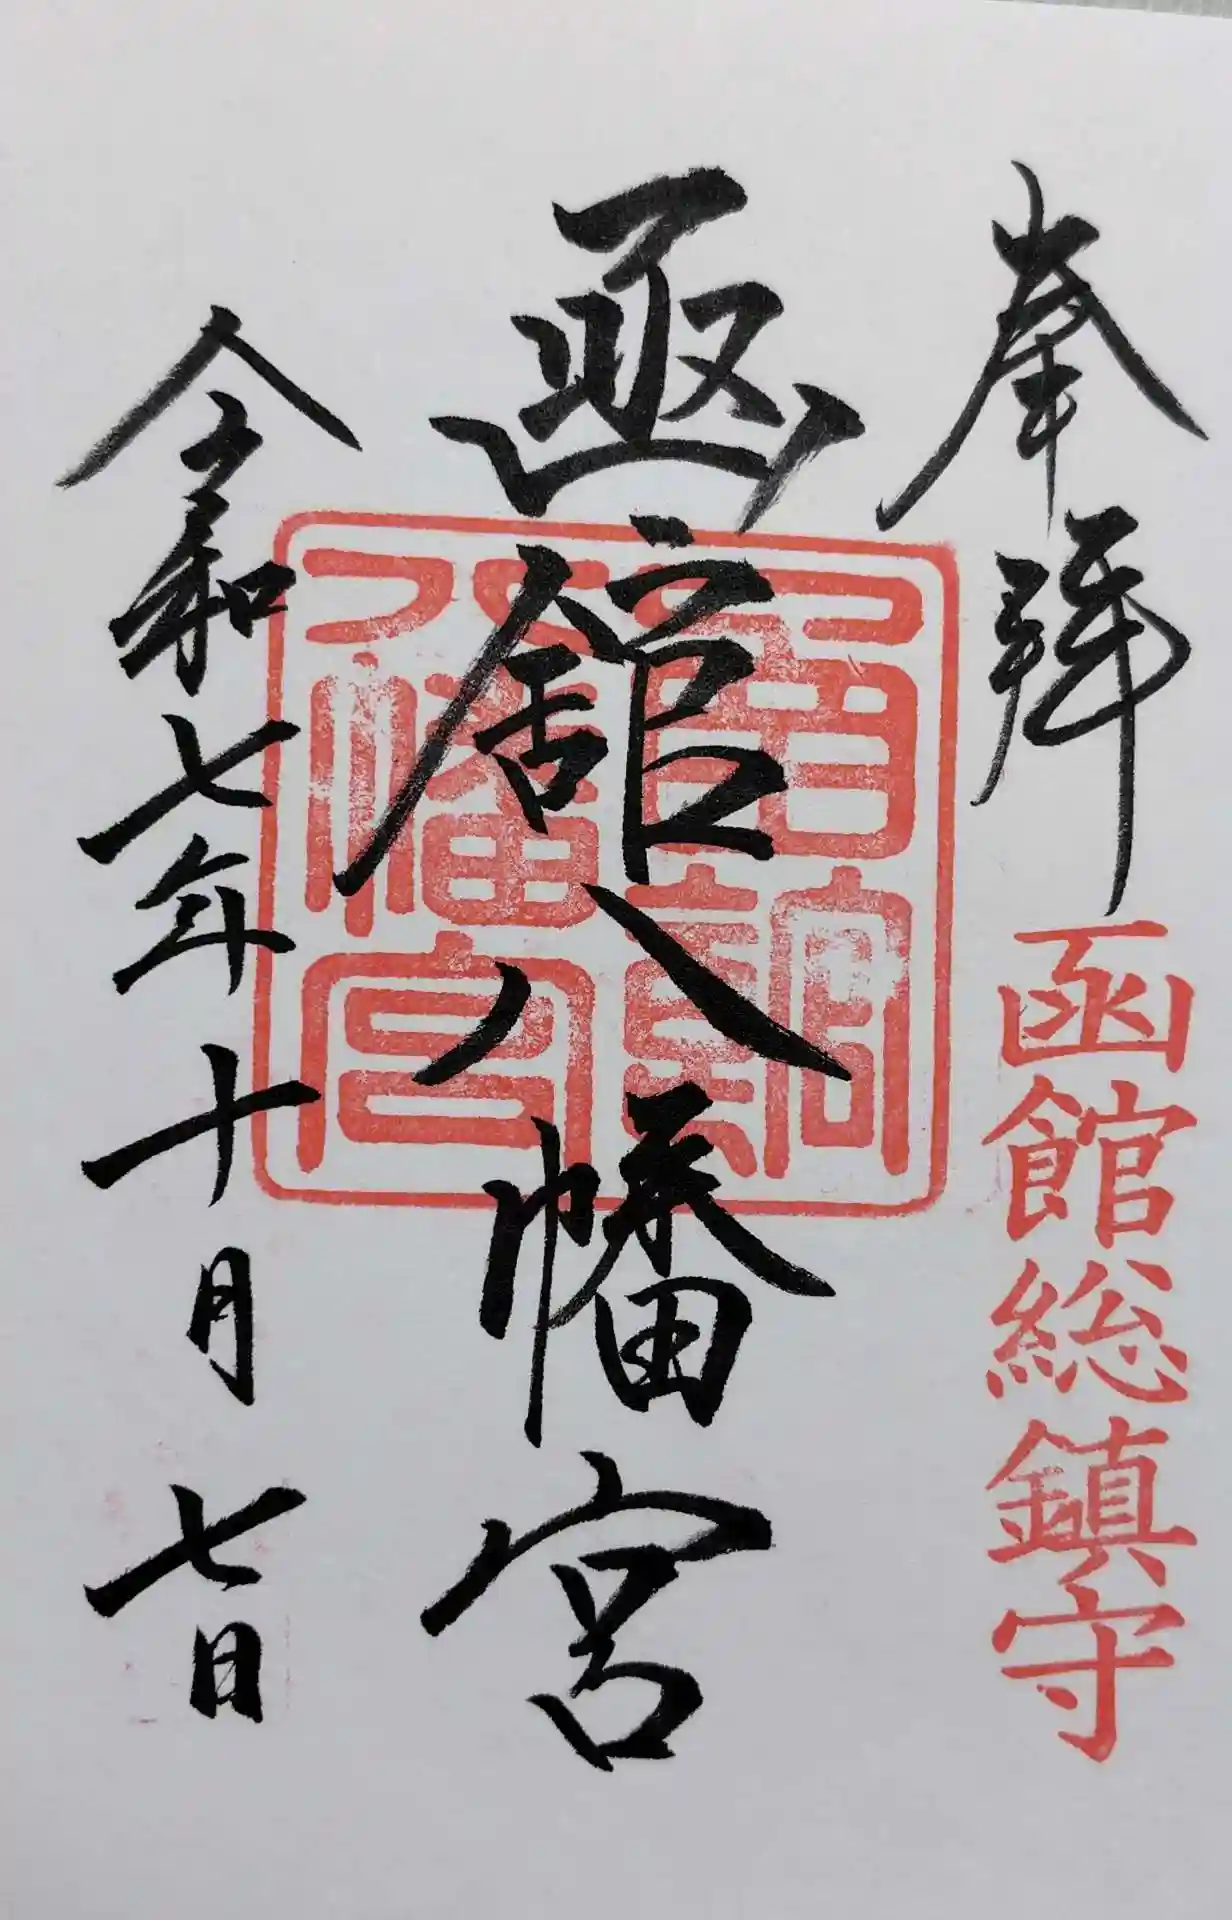 奉拝
函館総鎮守
函館八幡宮
令和七年十月七日